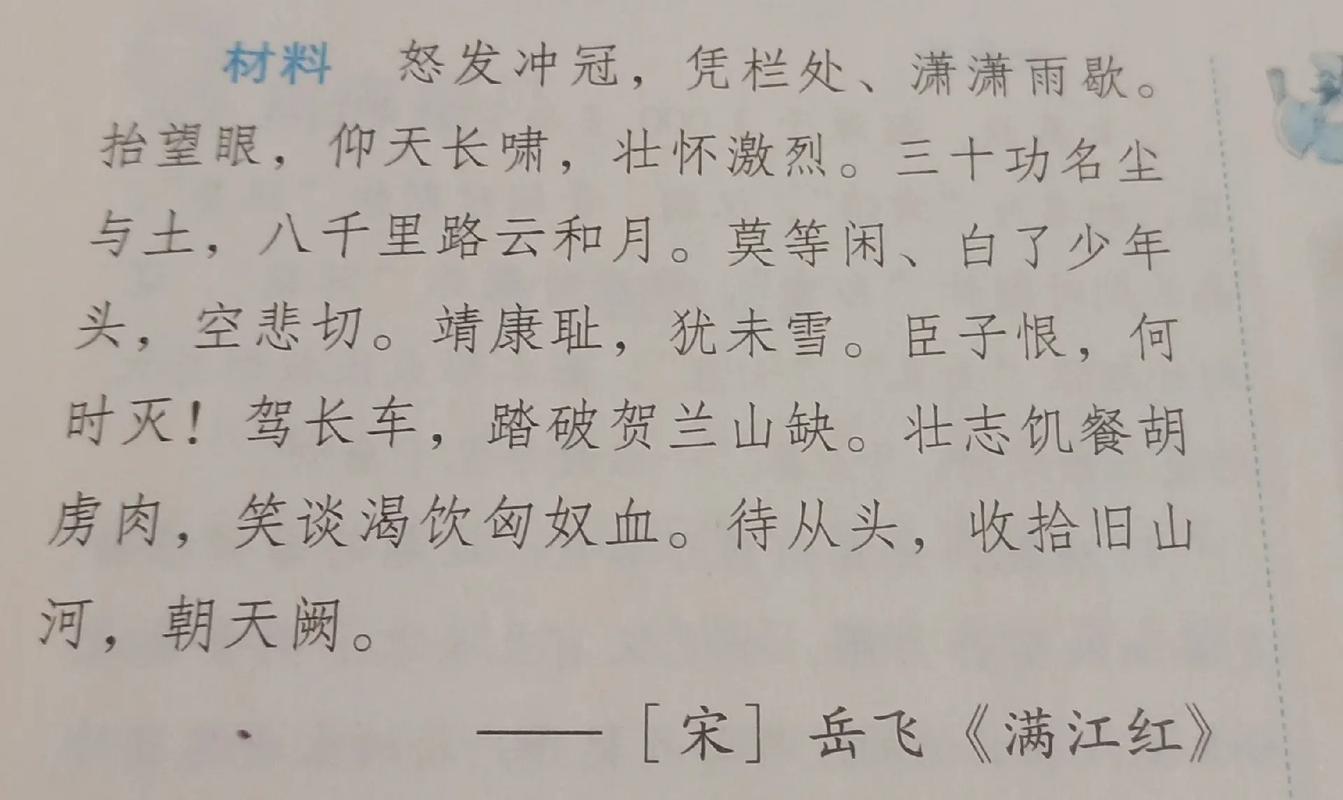 材料 怒发冲冠，凭栏处、潇潇雨歇。
抬望眼，仰天长啸，壮怀激烈。三十功名尘
与土，八千里路云和月。莫等闲、白了少年
头，空悲切。靖康耻，犹未雪。臣子恨，何
时灭！驾长车，踏破贺兰山缺。壮志饥餐胡
虏肉，笑谈渴饮匈奴血。待从头，收拾旧山
河，朝天阙。
——［宋］岳飞《满江红》